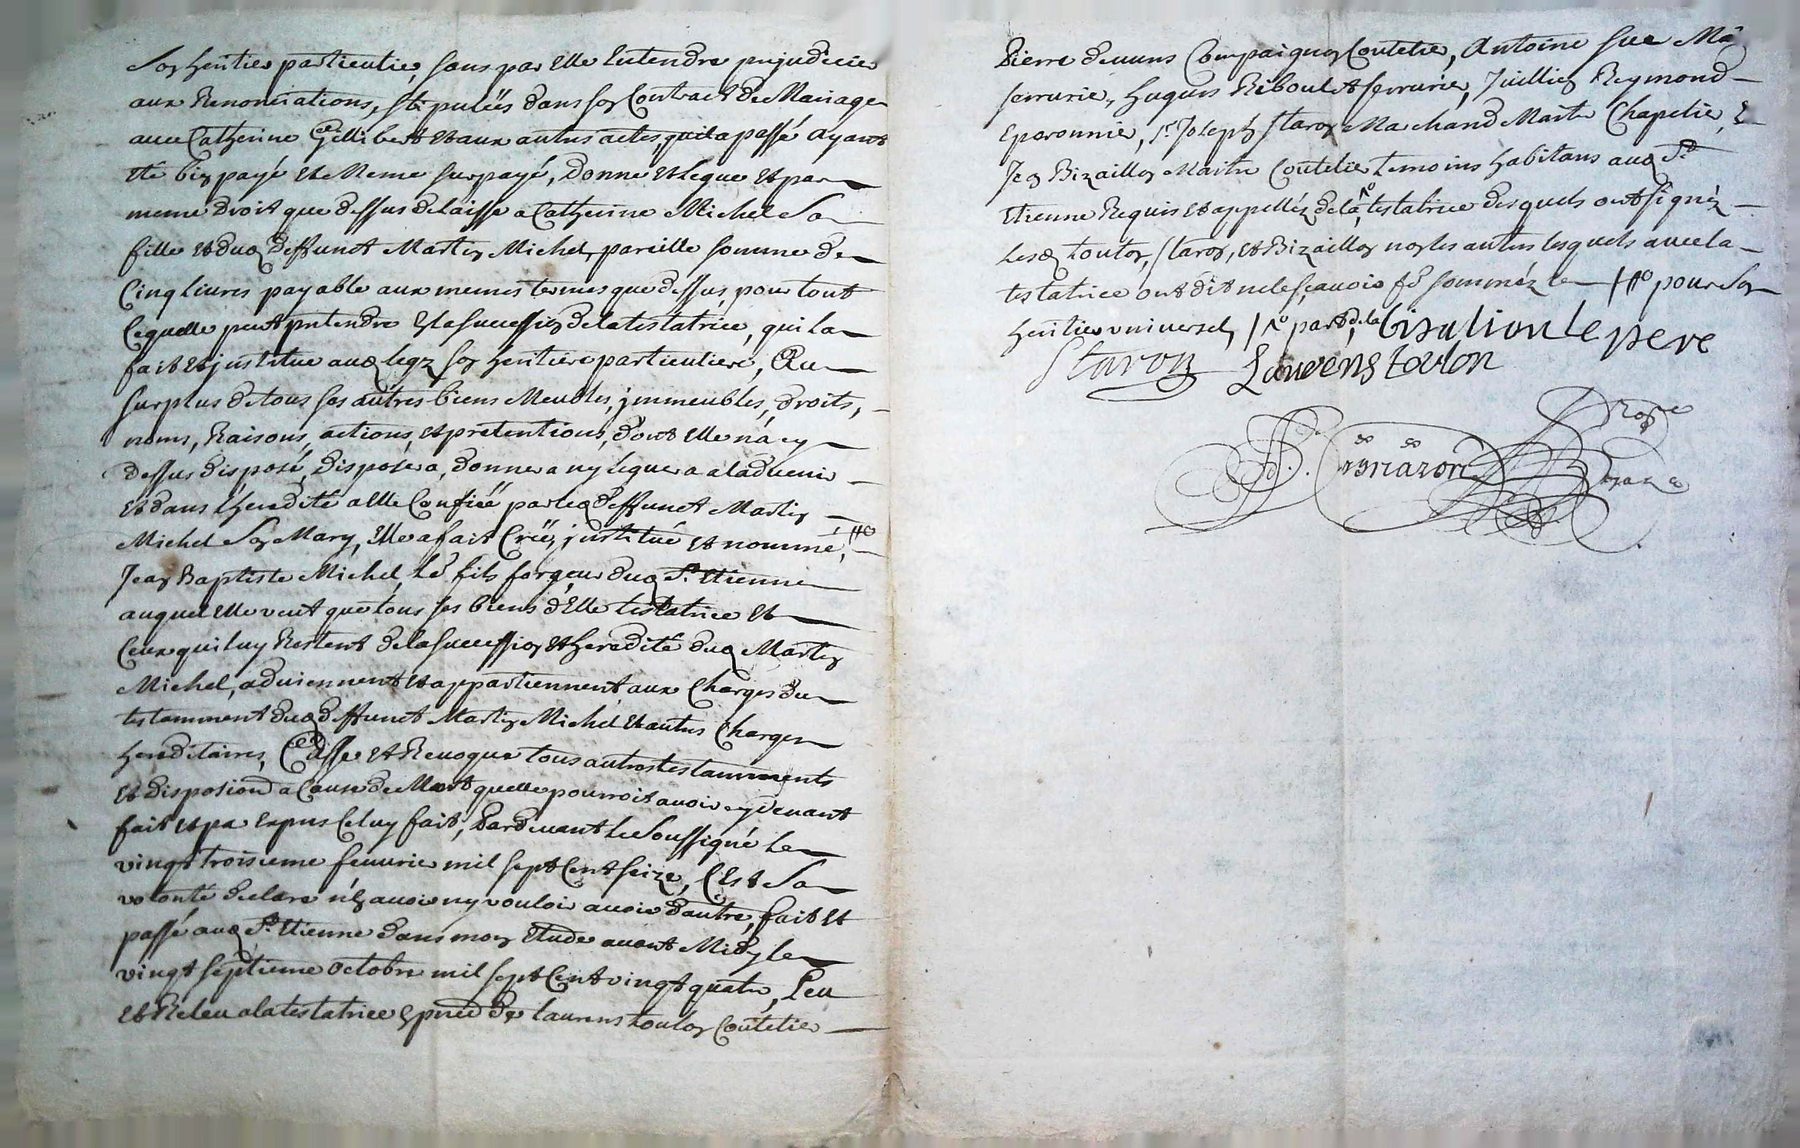 son heritier particulier, sans par elle entendre prejudicier
aux Renonciations, stipulëes dans son Contract de Mariage
avec Catherine Gillibert et aux autres actes, quil a passé ayant
eté bien payé et Meme surpayé, Donne et legue et par
meme droit que dessus delaisse a Catherine Michel sa
fille et dud deffunct Martin Michel, pareille somme de
Cinq livres payable aux memes termes que dessus, pour tout
Ce quelle peut pretendre en la succession de la testatrice, qui la
fait et institue aud legz son heritiere particuliere, Au
surplus de tous ses autres biens Meubles, immeubles, droits,
noms, Raisons, actions, et pretentions, dont elle n'a cy
dessus disposé, disposera, donnera ny leguera a ladvenir
et dans lheredité a elle Confiéé par led deffunct Martin
Michel son Mary, Elle a fait Créé, institué et nommé,
Jean Baptiste Michel, le fils forgeur dud St. Etienne
auquel elle veut que tous ses biens d'Elle testatrice et
Ceux qui luy Restent de la succession et heredité dud Martin
Michel, adviennent et appartiennent aux Charges du
testamment dud deffunct Martin Michel et autres Charges
hereditaires, Casse et Revoque tous autres testamments
et disposiond a Cause de Mort quelle pourroit avoir cy devant
fait et par expres Celuy fait, Pardevant le soussigné le
vingt troisieme fevurier mil sept Cent seize, C'est sa
volonté declare n'en avoir ny vouloir avoir d'autre, fait et
passé aud St. Etienne dans mon Etude avant Midy le
vingt septieme octobre mil sept Cent vingt quatre, Leu
et Releu a la testatrice en pnce de laurens toulon Coutelier
Pierre devuns Compaignon Coutelier, Antoine sue Me
serrurier, hugues Riboulet serrurier, Jullien Reymond
Eporonnier, sr. Joseph staron Marchand Maitre Chapelier, Et
Jean Bizaillon Maitre Coutelier temoins habitans aud St.
Etienne Requis et appelléz de la testatrice desquels ont signéz
lesd toulon, staron, et Bizaillon non les autres lesquels avec la
testatrice ont dit ne le sçavoir fe. sommez le pour son
heritier universel, part de la bisalion le pere
Staron Lawens toulon